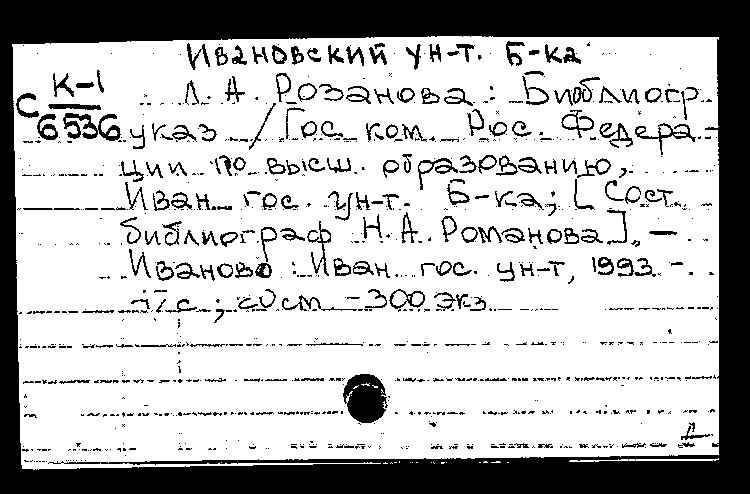 Ивановский ун-т. Б-ка
К-1
С
6536
Л. А. Розанова : Библиогр.
указ / Гос ком. Рос. Федера-
ции по высш. образованию,
Иван. гос. ун-т. Б-ка; [Сост.
библиограф Н. А. Романова]. —
Иваново : Иван. гос. ун-т, 1993 -
с ; 20 см. - 300 экз